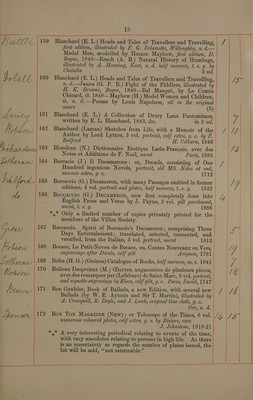 18
159 Blanchard (E. L.) Heads and Tales of Travellers and Travelling,
first edition, illustrated by F. G. Delamotte, Willoughby, n. d.—
Model Men, modelled by Horace Mayhew, first edition, D.
Bogue, 1848—Reach (A. B.) Natural History of Humbugs,
illustrated by A. Henning, Kent, n. d. half morocco, t. e. g. by
Chatelin 3 vol.
160 Blanchard (E. L.) Heads and Tales of Travellers and Travelling,
n. d.—James (G. P. R.) Fight of the Fiddlers, illustrated by
H. K. Browne, Bogue, 1849—Bal Masqué, by Le Comte
Chicard, ib. 1848—Mayhew (H.) Model Women and Children,
ib. n. d.—Poems by Louis Napoleon, all in the original
covers (5)
161 Blanchard (E. L.) A Collection of Drury Lane Pantomimes,
written by E. L. Blanchard, 1843, &c. in 2 vol.
162 Blanchard (Laman) Sketches from Life, with a Memoir of the
Author by Lord Lytton, 3 vol. portrait, calf extra, g. e. by F.
Bedford H. Colburn, 1846
163 Blondeau (N.) Dictionnaire Erotique Latin-Français, avec des
Notes et Additions de F. Noël, uncut Paris, 1885
164 Boccacio (J.) Il Decamerone: or, Decads, consisting of One
Hundred ingenious Novels, portrait, old MS. Notes at end,
morocco extra, g. e. 1712
165 Boccaccio (G.) Decameron, with many Passages omitted in former
editions, 4 vol. portrait and plates, half morocco, t. e. g. 1822
166 BOCCACCIO (G.) DECAMERON, now first completely done into
English Prose and Verse by J. Payne, 3 vol. gilt parchment,
uncut, t. e. g. 1886
*⁎* Only a limited number of copies privately printed for the
members of the Villon Society.
167 Boccaccio. Spirit of Boccaccio's Decameron; comprising Three
Days Entertainment; translated, selected, connected, and
versified, from the Italian, 3 vol. portrait, uncut 1812
168 Bocace, Le Petit-Neveu de Bocace, ou, Contes Nouveaux en Vers,
engravings after Dorain, calf gilt Avignon, 1781
169 Bohn (H. G.) (Guinea) Catalogue of Books, half morocco, m. e. 1841
170 Boileau Despréaux (M.) Œuvres, augmentées de plusieurs pièces,
avec des remarques par (Lefebvre) de Saint-Marc, 5 vol. portrait,
and vignette engravings by Eisen, calf gilt, g. e. Paris, David, 1747
171 Bon Gaultier, Book of Ballads, a new Edition, with several new
Ballads (by W. E. Aytoun and Sir T. Martin), illustrated by
A. Crowquill, R. Doyle, and J. Leech, original blue cloth, g. e.
Orr, n. d.
172 BON TON MAGAZINE (NEW); or Telescope of the Times, 6 vol.
numerous coloured plates, calf extra, g. e. by Riviere, rare
J. Johnstone, 1818-21
*⁎* A very interesting periodical relating to events of the time,
with racy anecdotes relating to persons in high life. As there
is an uncertainty as regards the number of plates issued, the
lot will be sold, "not returnable."